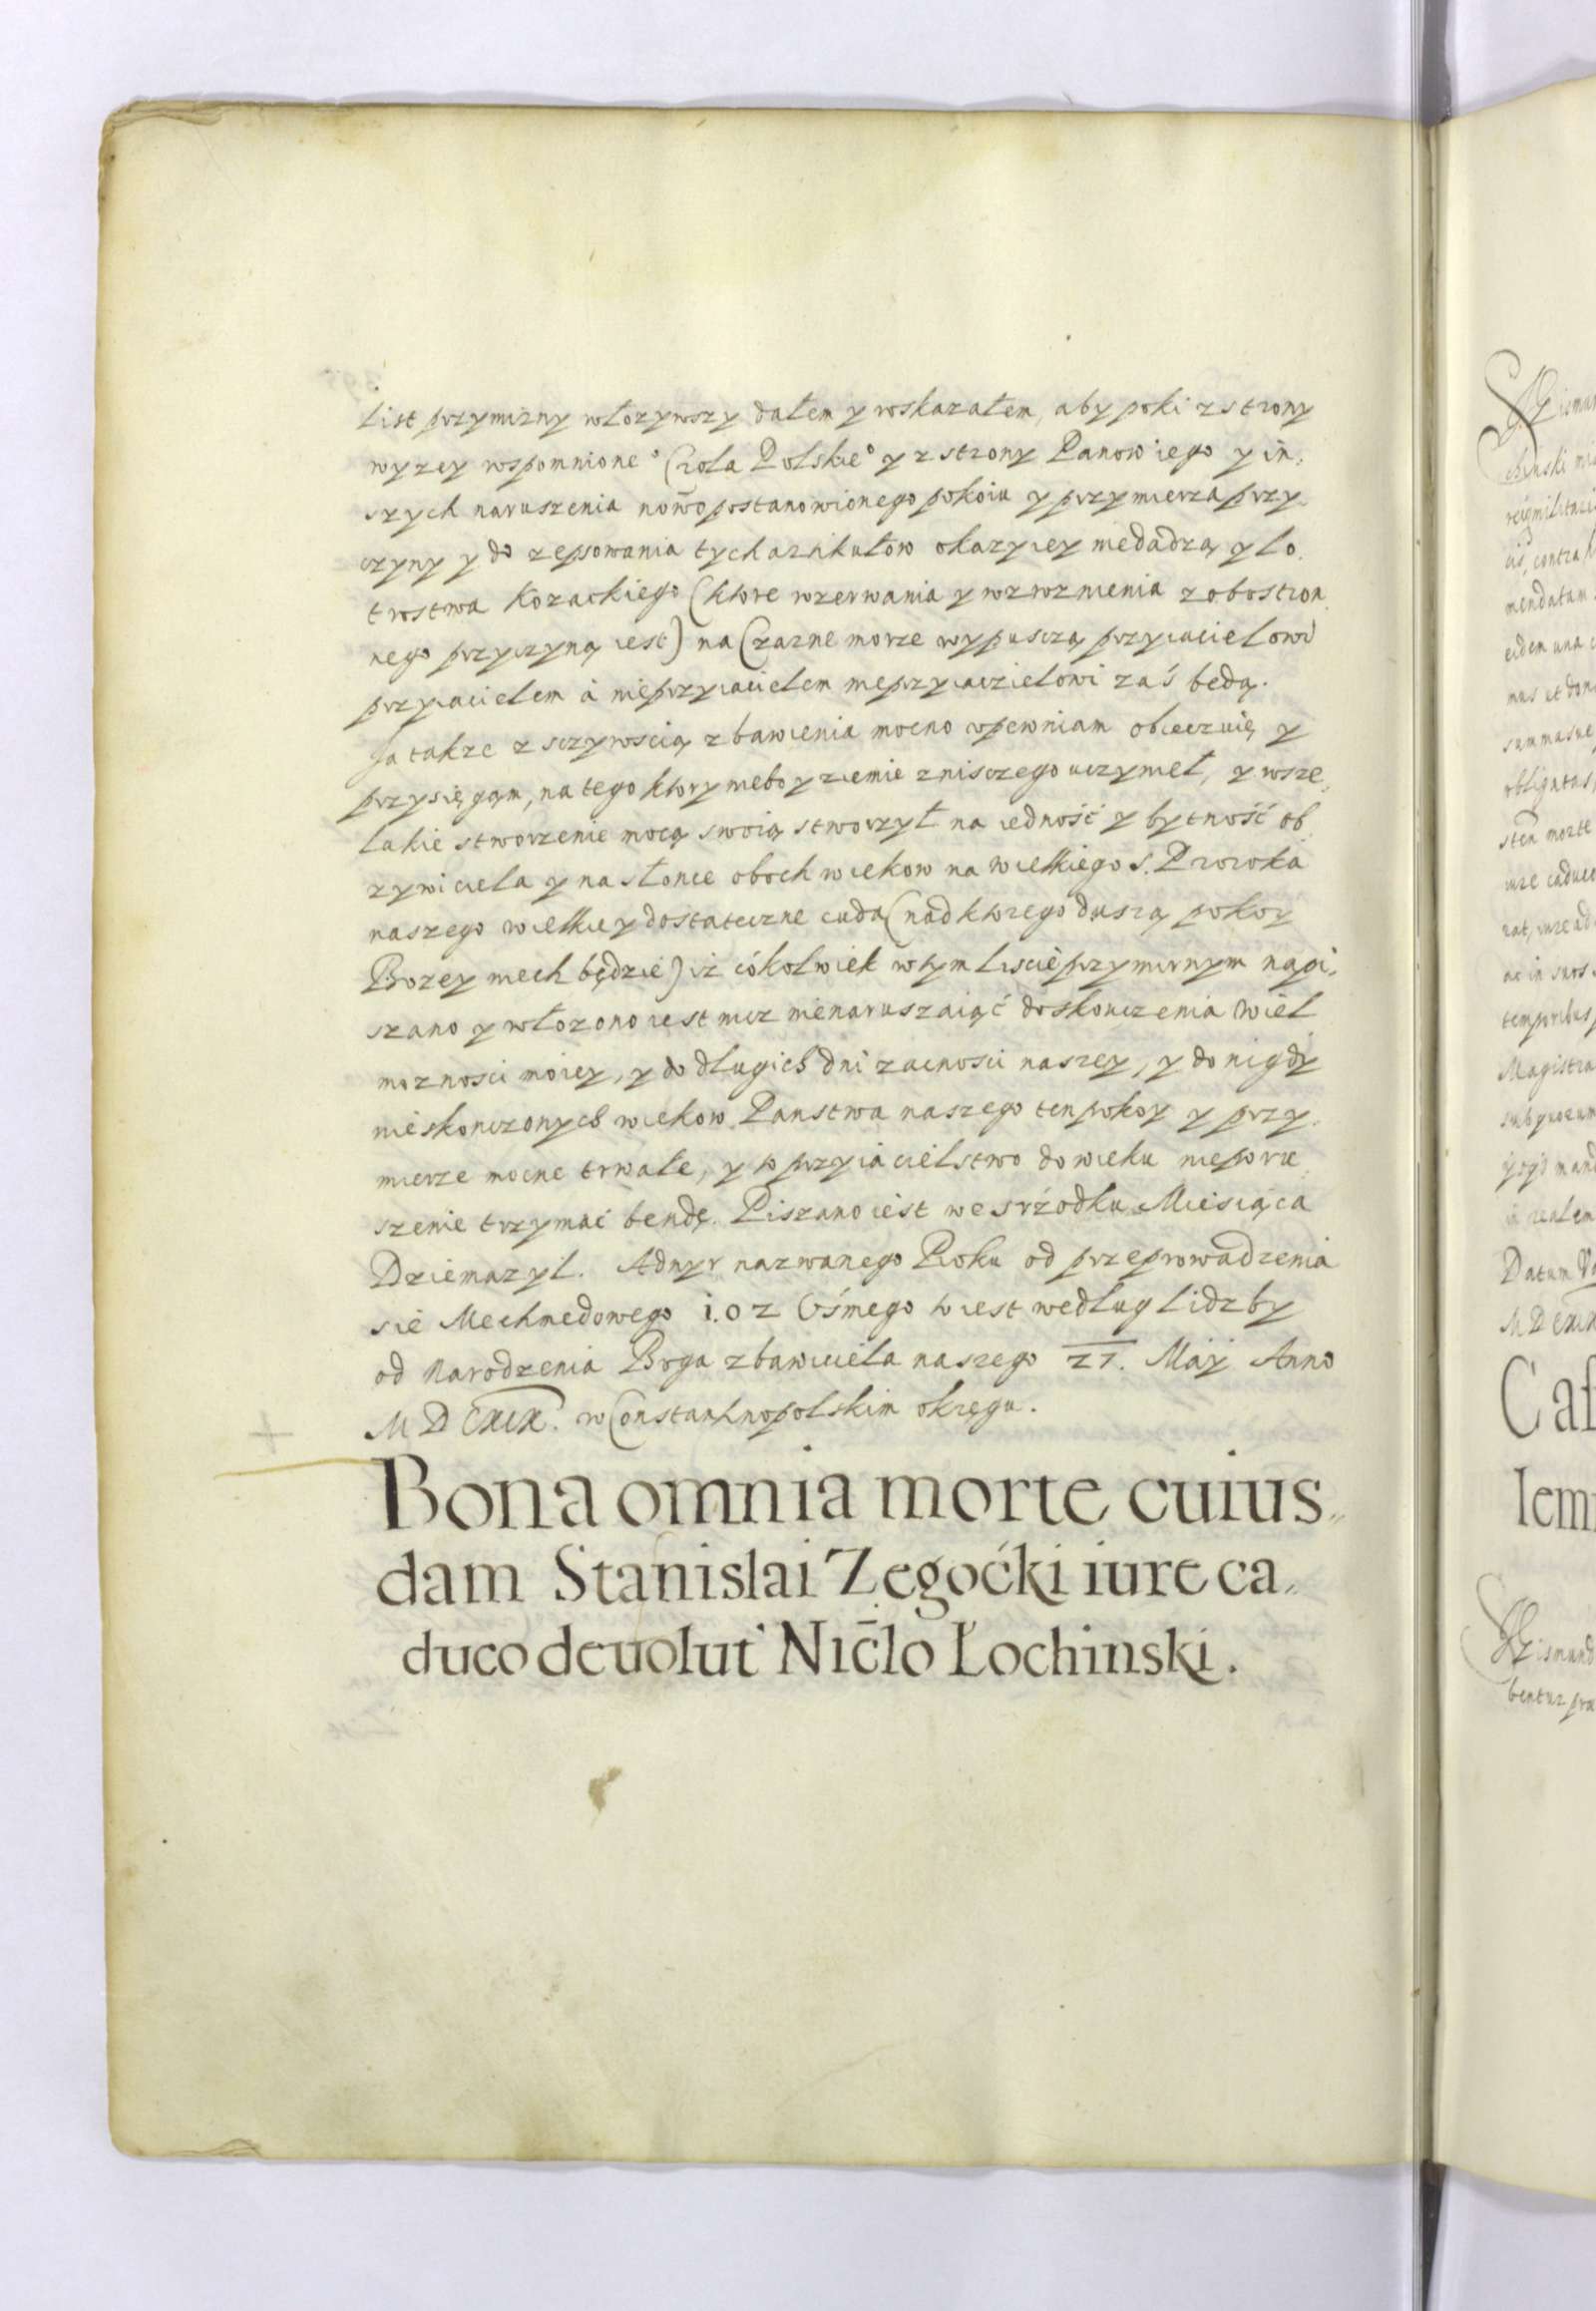 list przymirny włozywszy dałem y wskazałem, aby poki z strony
wyzey wspomnione° Crola Polskie° y z strony Panow iego y in,
szych naruszenia nowo postanowionego pokoiu y przymierza przy
czyny y do zepsowania tych artikułow okazyiey niedadzą y ło
trostwa Kozackiego (ktore rozerwania y wzroznienia z obostron
nego przyczyną iest) na Czarne morze wypuszczą przyiacielowi
przyiacielem á nieprzyiacielem nieprzyiaczielowi zaś będą.
Ja takze z sczyroscią zbawienia mocno vpewniam obiecuię y
przysięgąm, na tego ktory niebo y ziemie z nisczego uczynieł, y wsze,
lakie stworzenie mocą swoią stworzył na iedność y bytność ob
zywiciela y na słonce oboch wiekow na wielkiego S. Proroka
naszego wielkie y dostateczne cuda (nad ktorego duszą pokoy
Bozey niech będzie) iż cókolwiek w tym liscie przymirnym napi,
szano y włozono iest nicz nienaruszaiąć do skonczenia Wiel
moznosci moiey, y do długich dni zacnosci naszey, y do nigdy
nieskonczonych wiekow Panstwa naszego ten pokoy y przy,
mierze mocne trwałe, y to przyiacielstwo do wieku nieporu
szenie trzymać bendę. Piszano iest we srzodku Miesiąca
Dziemazyl. Adnyr nazwanego Roku od przeprowadzenia
sie Mechmedowego i.oz Ośmego to iest według lidzby
od Narodzenia Boga zbawiciela naszego 27. Maÿ Anno
M D CXIX. w Constantinopolskim okręgu.
Bona omnia morte cuius„
dam Stanislai Zegoćki iure ca„
duco devolut' Nic̄lo Łochinski.